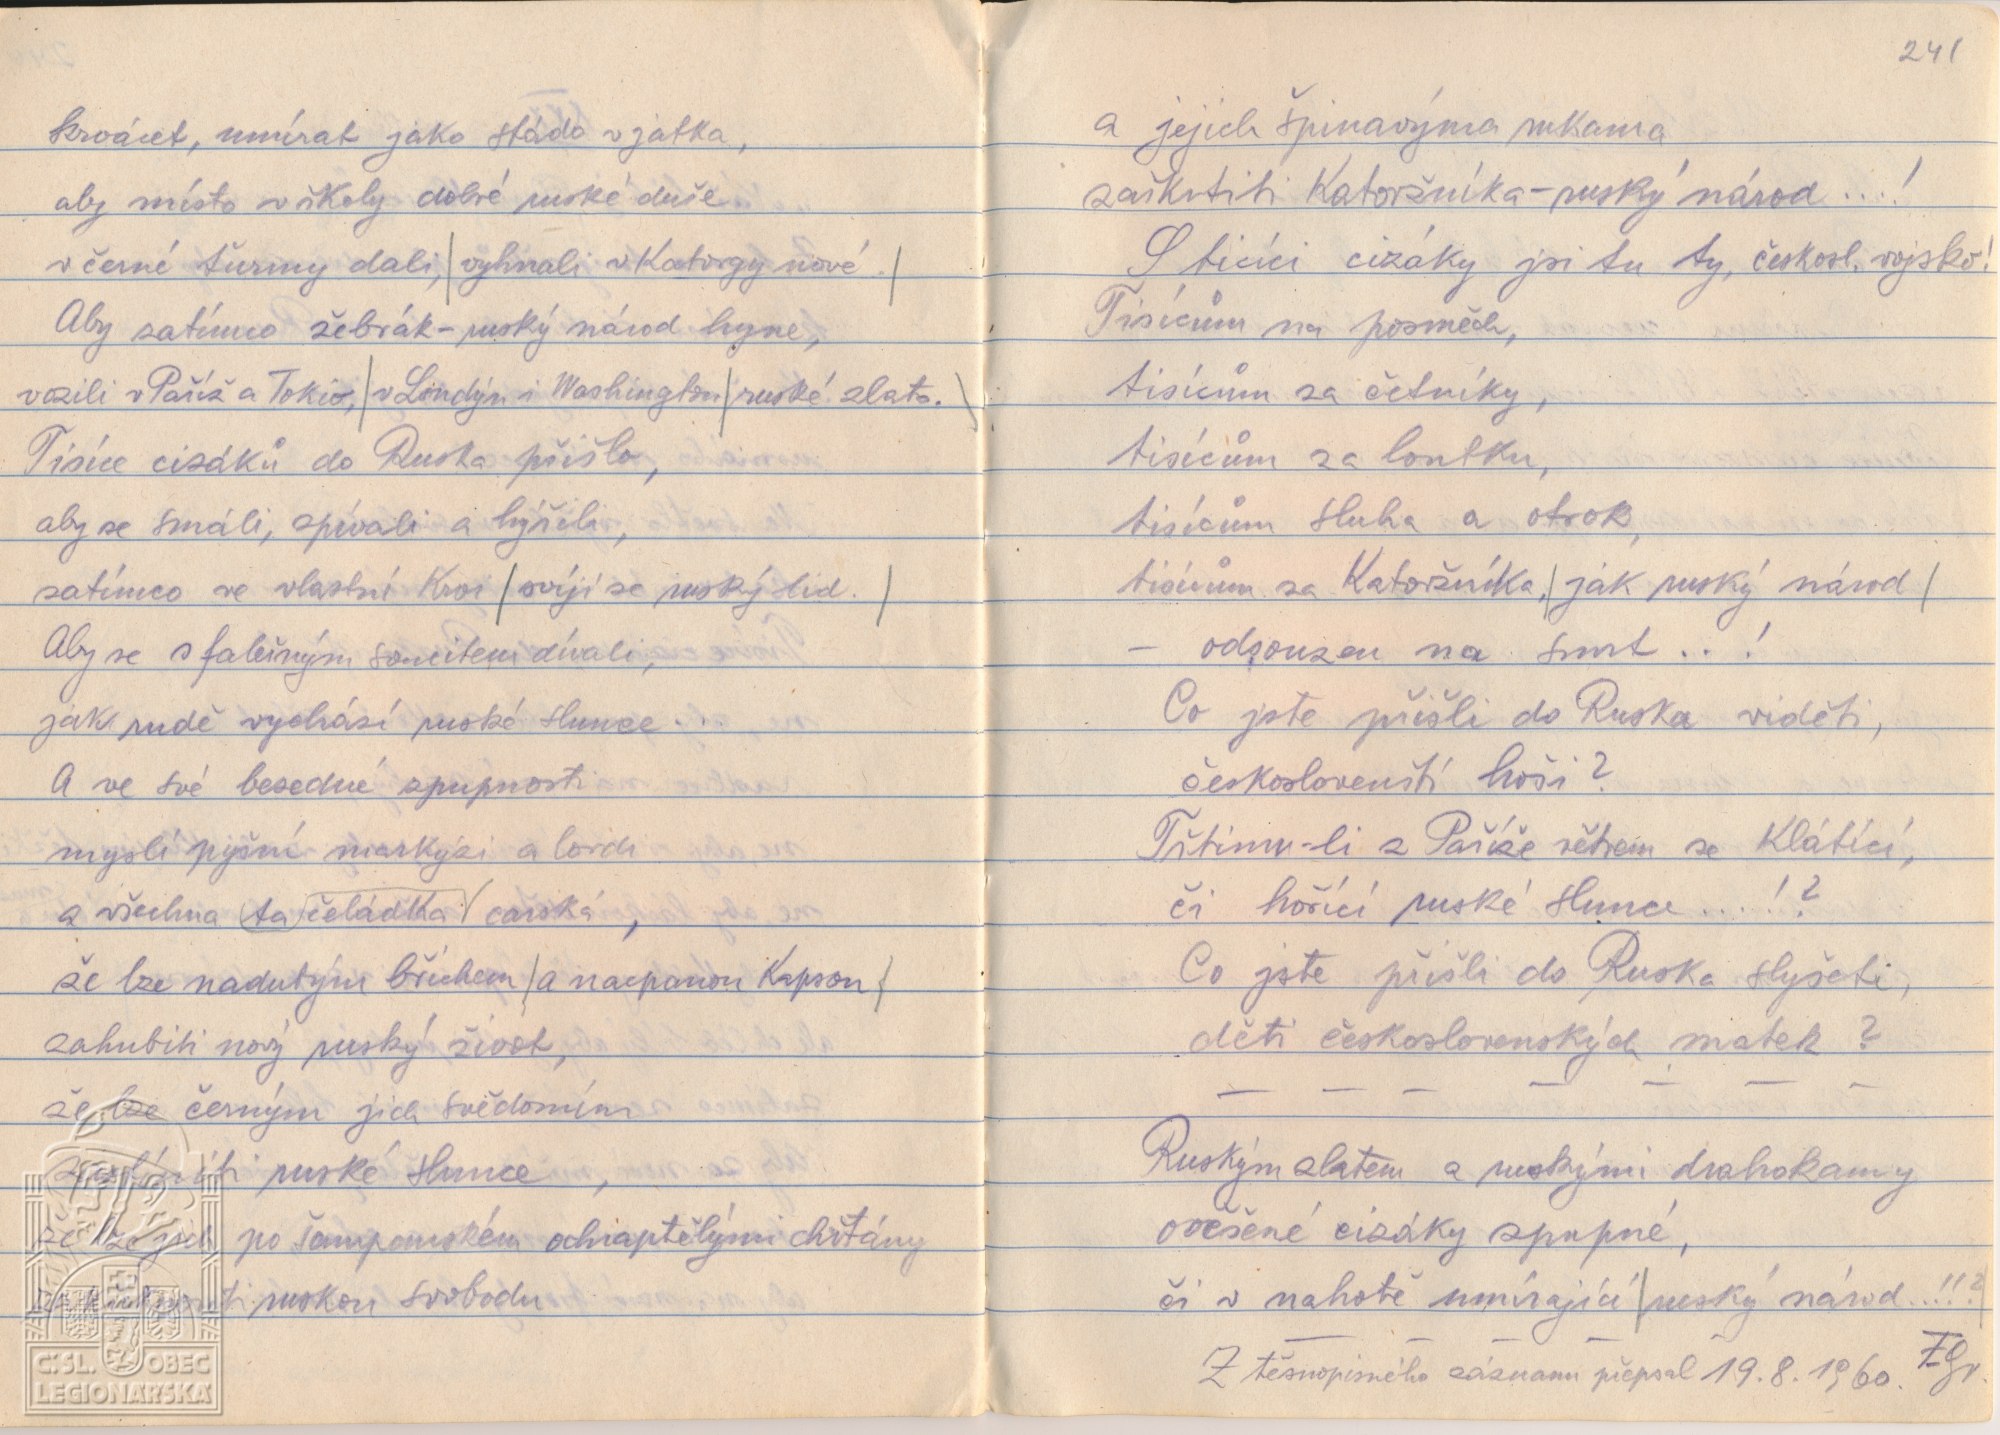 krvácet, umírat jako stádo v jatka,
aby místo v školy dobré ruské duše
v černé turmy dali, | vyhnali v Katorgy nové. |
Aby zatímco žebrák-ruský národ hyne,
vozili v Paříž a Tokio, | v Londýn i Washington | ruské zlato. |
Tisíce cizáků do Ruska přišlo,
aby se smáli, zpívali a hýřili,
zatímco ve vlastní Krvi | svíjí se ruský lid. |
Aby se s falešným soucitem dívali,
jak rudě vychází ruské slunce...
A ve své bezedné zpupnosti
myslí pyšní markýzi a lordi
a všechna ta čeládka carská,
že lze nadutým břichem | a nacpanou Kapsou |
zahubiti nový ruský život,
že lze černým jich svědomím
ruské slunce,
že lze jich po šampaňském ochraptělými chřtány
ruskou svobodu
241
a jejich špinavýma rukama
zaškrtiti Katoržníka-ruský národ ...!
S tisíci cizáky jsi tu ty, českosl. vojsko!
Tisícům na posměch,
tisícům za četníky,
tisícům za loutku,
tisícům sluha a otrok,
tisícům za Katoržníka, | jak ruský národ |
- odsouzen na smrt ..!
Co jste přišli do Ruska viděti,
českoslovenští hoši?
Třtinu-li z Paříže větrem se Klátící,
či hořící ruské slunce ....!?
Co jste přišli do Ruska slyšeti,
děti československých matek?
— — — — — — —
Ruským zlatem a ruskými drahokamy
ověšené cizáky zpupné,
či v nahotě umírající | ruský národ ..!!? |
— — — — —
Z těsnopisného záznamu přepsal 19.8.1960.
ČSL. OBEC
LEGIONÁŘSKÁ